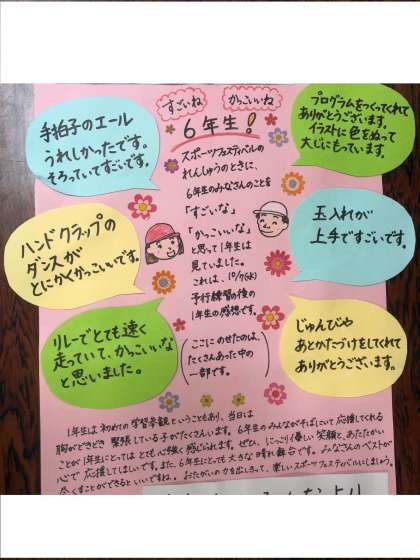 すごいね
かっこいいね
6年生!
手拍子のエール
うれしかったです。
そろっていてすごいです。
プログラムをつくってくれて
ありがとうございます。
イラストに色をぬって
大じにもっています。
スポーツフェスティバルの
れんしゅうのときに、
6年生のみなさんのことを
「すごいな」
「かっこいいな」
と思って1年生は
見ていました。
これは、10/7(水)
予行練習の後の
1年生の感想です。
ハンドクラップの
ダンスが
とにかくかっこいいです。
玉入れが
上手ですごいです。
リレーでとても速く
走っていて、かっこいいな
と思いました。
じゅんびや
あとかたづけをしてくれて
ありがとうございます。
ここにのせたのは、
たくさんあった中の
一部です。
1年生は初めての学習参観ということもあり、当日は
胸がどきどき緊張している子がたくさんいます。6年生のみんながそばにいて応援してくれる
ことが1年生にとってはとても心強く感じられます。ぜひ、にっこり優しい笑顔と、あたたかい
心で応援してほしいです。また、6年生にとても大きな晴れ舞台です。みなさんのベストが
尽くすことができるといいですね。おたがいの力を出しきって、楽しいスポーツフェスティバルにしましょう。